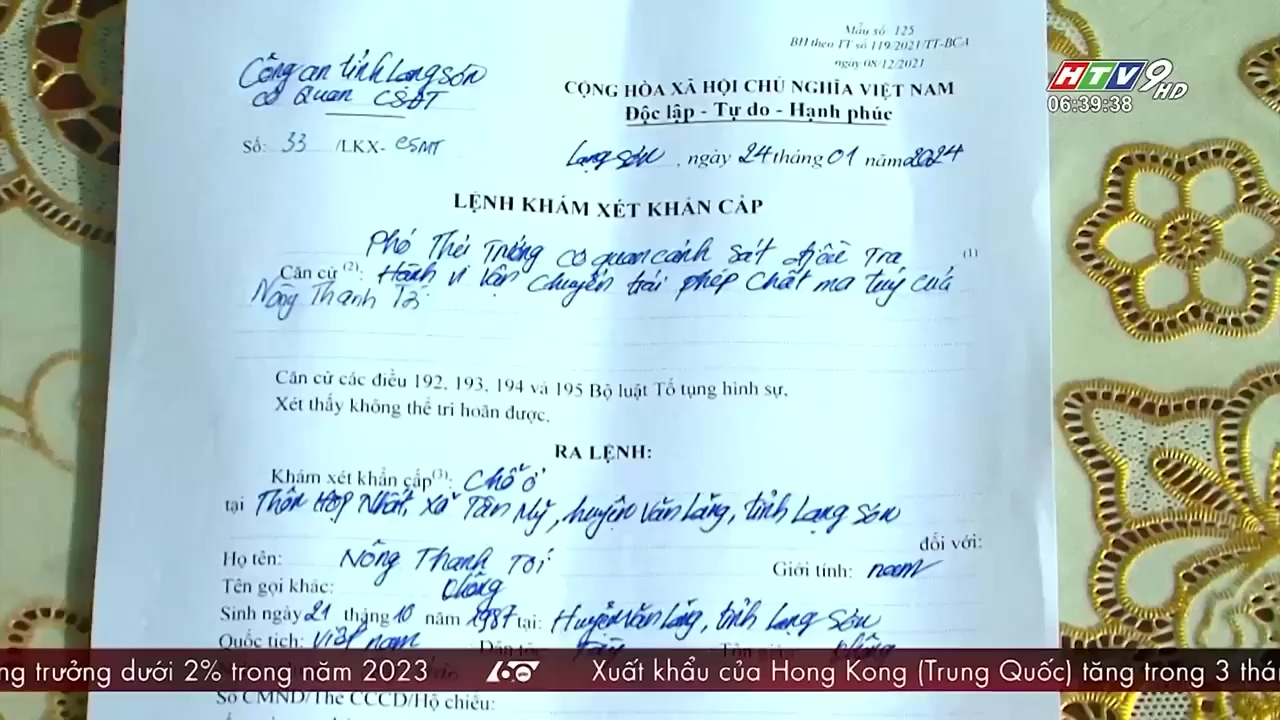 Mẫu số 125
BH theo TT số 119/2021/TT-BCA
ngày 08/12/2021
HTV9 HD
06:39:38
Công an tỉnh Lạng Sơn
Cơ Quan CSĐT
CỘNG HÒA XÃ HỘI CHỦ NGHĨA VIỆT NAM
Độc lập - Tự do - Hạnh phúc
Số: 33 /LKX- CSMT
Lạng Sơn, ngày 24 tháng 01 năm 2024
LỆNH KHÁM XÉT KHẨN CẤP
Phó Thủ Trưởng cơ quan cảnh sát điều Tra (1)
Căn cứ (2): Hành vi vận chuyển trái phép chất ma túy của
Nông Thanh Tới
Căn cứ các điều 192, 193, 194 và 195 Bộ luật Tố tụng hình sự,
Xét thấy không thể trì hoãn được,
RA LỆNH:
Khám xét khẩn cấp(3): Chỗ ở
tại Thôn Hợp Nhất, xã Tân Mỹ, huyện Văn Lãng, tỉnh Lạng Sơn
đối với:
Họ tên: Nông Thanh Tới Giới tính: nam
Tên gọi khác: Không
Sinh ngày 21 tháng 10 năm 1987 tại: Huyện Văn Lãng, tỉnh Lạng Sơn
Quốc tịch: Việt nam
ng trưởng dưới 2% trong năm 2023 60 Xuất khẩu của Hong Kong (Trung Quốc) tăng trong 3 thán
Số CMND/Thẻ CCCD/Hộ chiếu: